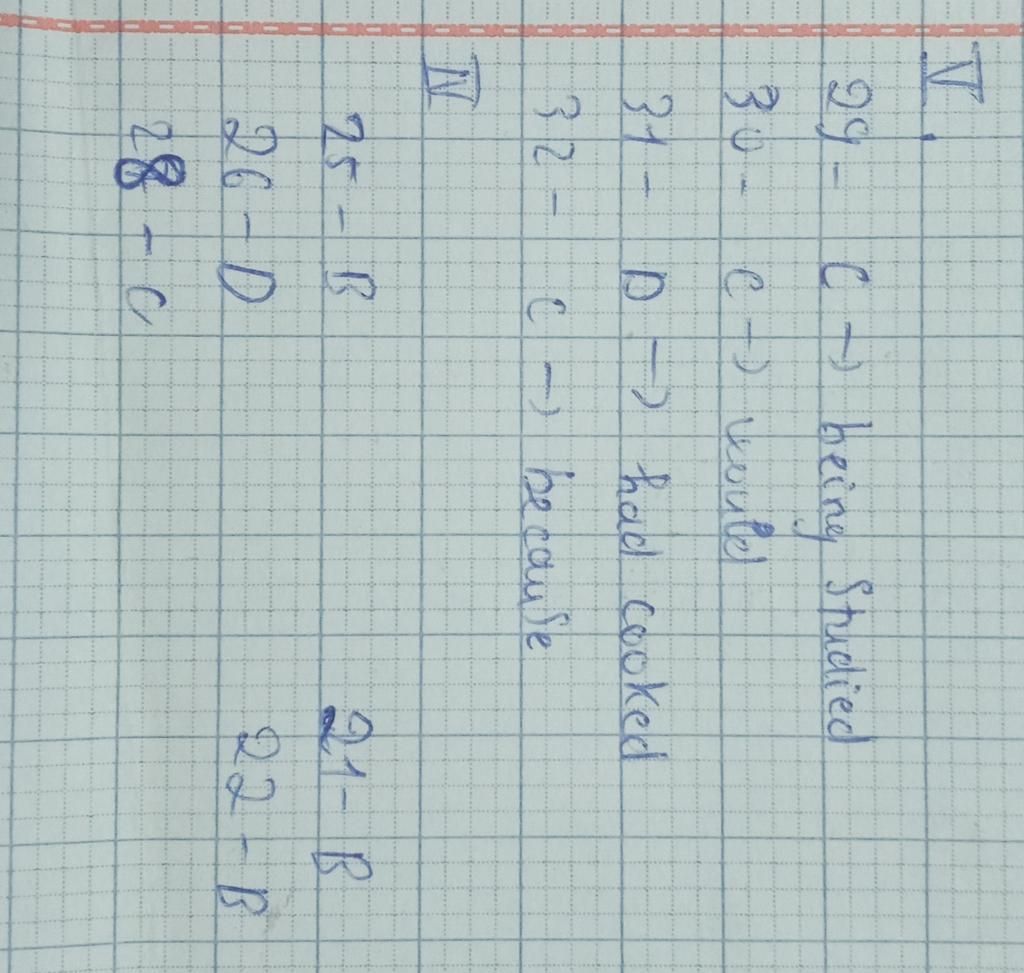 V.
29 - C → being studied
30 - C → would
31 - D → had cooked
32 - C → because
IV
25 - B
26 - D
28 - C
21 - B
22 - B